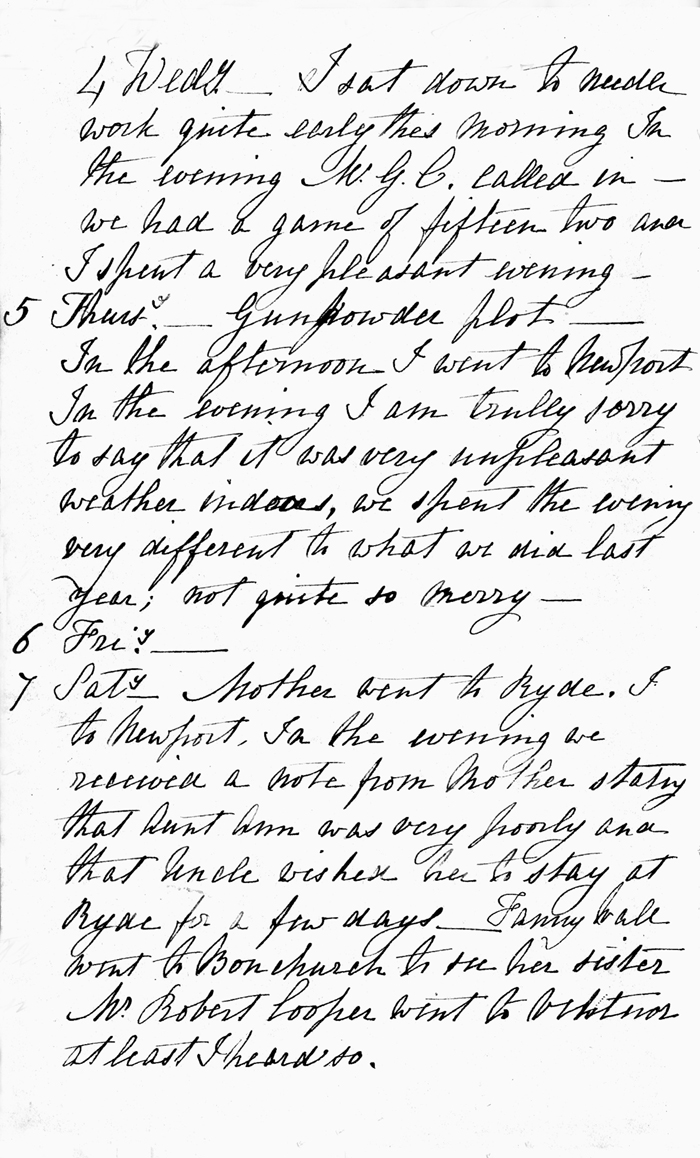 4 Wedy. — I sat down to needle
work quite early this morning In
the evening Mr. G. C. called in —
we had a game of fifteen two and
I spent a very pleasant evening —
5 Thurs.. — Gunpowder plot —
In the afternoon I went to Newport
In the evening I am trully sorry
to say that it was very unpleasant
weather indoors, we spent the evening
very different to what we did last
year; not quite so merry —
6 Fri.y —
7 Saty — Mother went to Ryde. I
to Newport. In the evening we
received a note from Mother stating
that Aunt Ann was very poorly and
that Uncle wished her to stay at
Ryde for a few days — Fanny
went to Bonchurch to see her sister
Mr. Robert Cooper went to Ventnor
at least I heard so.